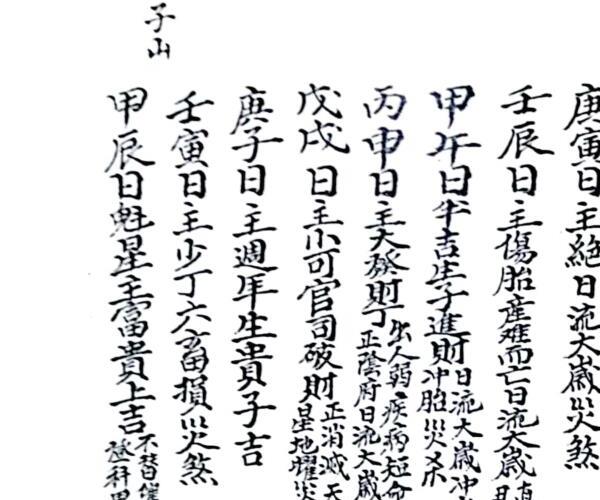 庚寅日主絕日流太歲災煞
壬辰日主傷胎產难而亡日流太歲
甲午日半吉生子進財日流太歲冲
冲胎災杀
丙申日主大發財丁出人弱疾病短命
正陰府日流太歲
戊戌日主小可官司破財正消滅天
星地曜災
庚子日主週年生貴子吉
壬寅日主少丁六畜損災煞
甲辰日魁星主富貴上吉不替催
登科甲
子山